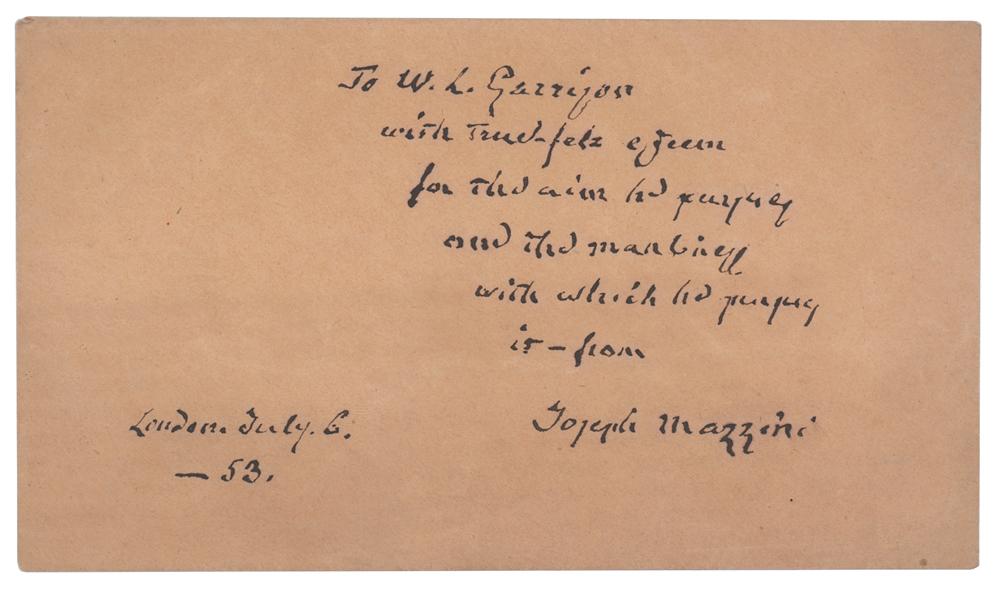 To W. L. Garrison
with true-felt esteem
for the aim he pursues
and the manliness
with which he pursues
it – from
Joseph Mazzini
London. July. 6.
– 53.